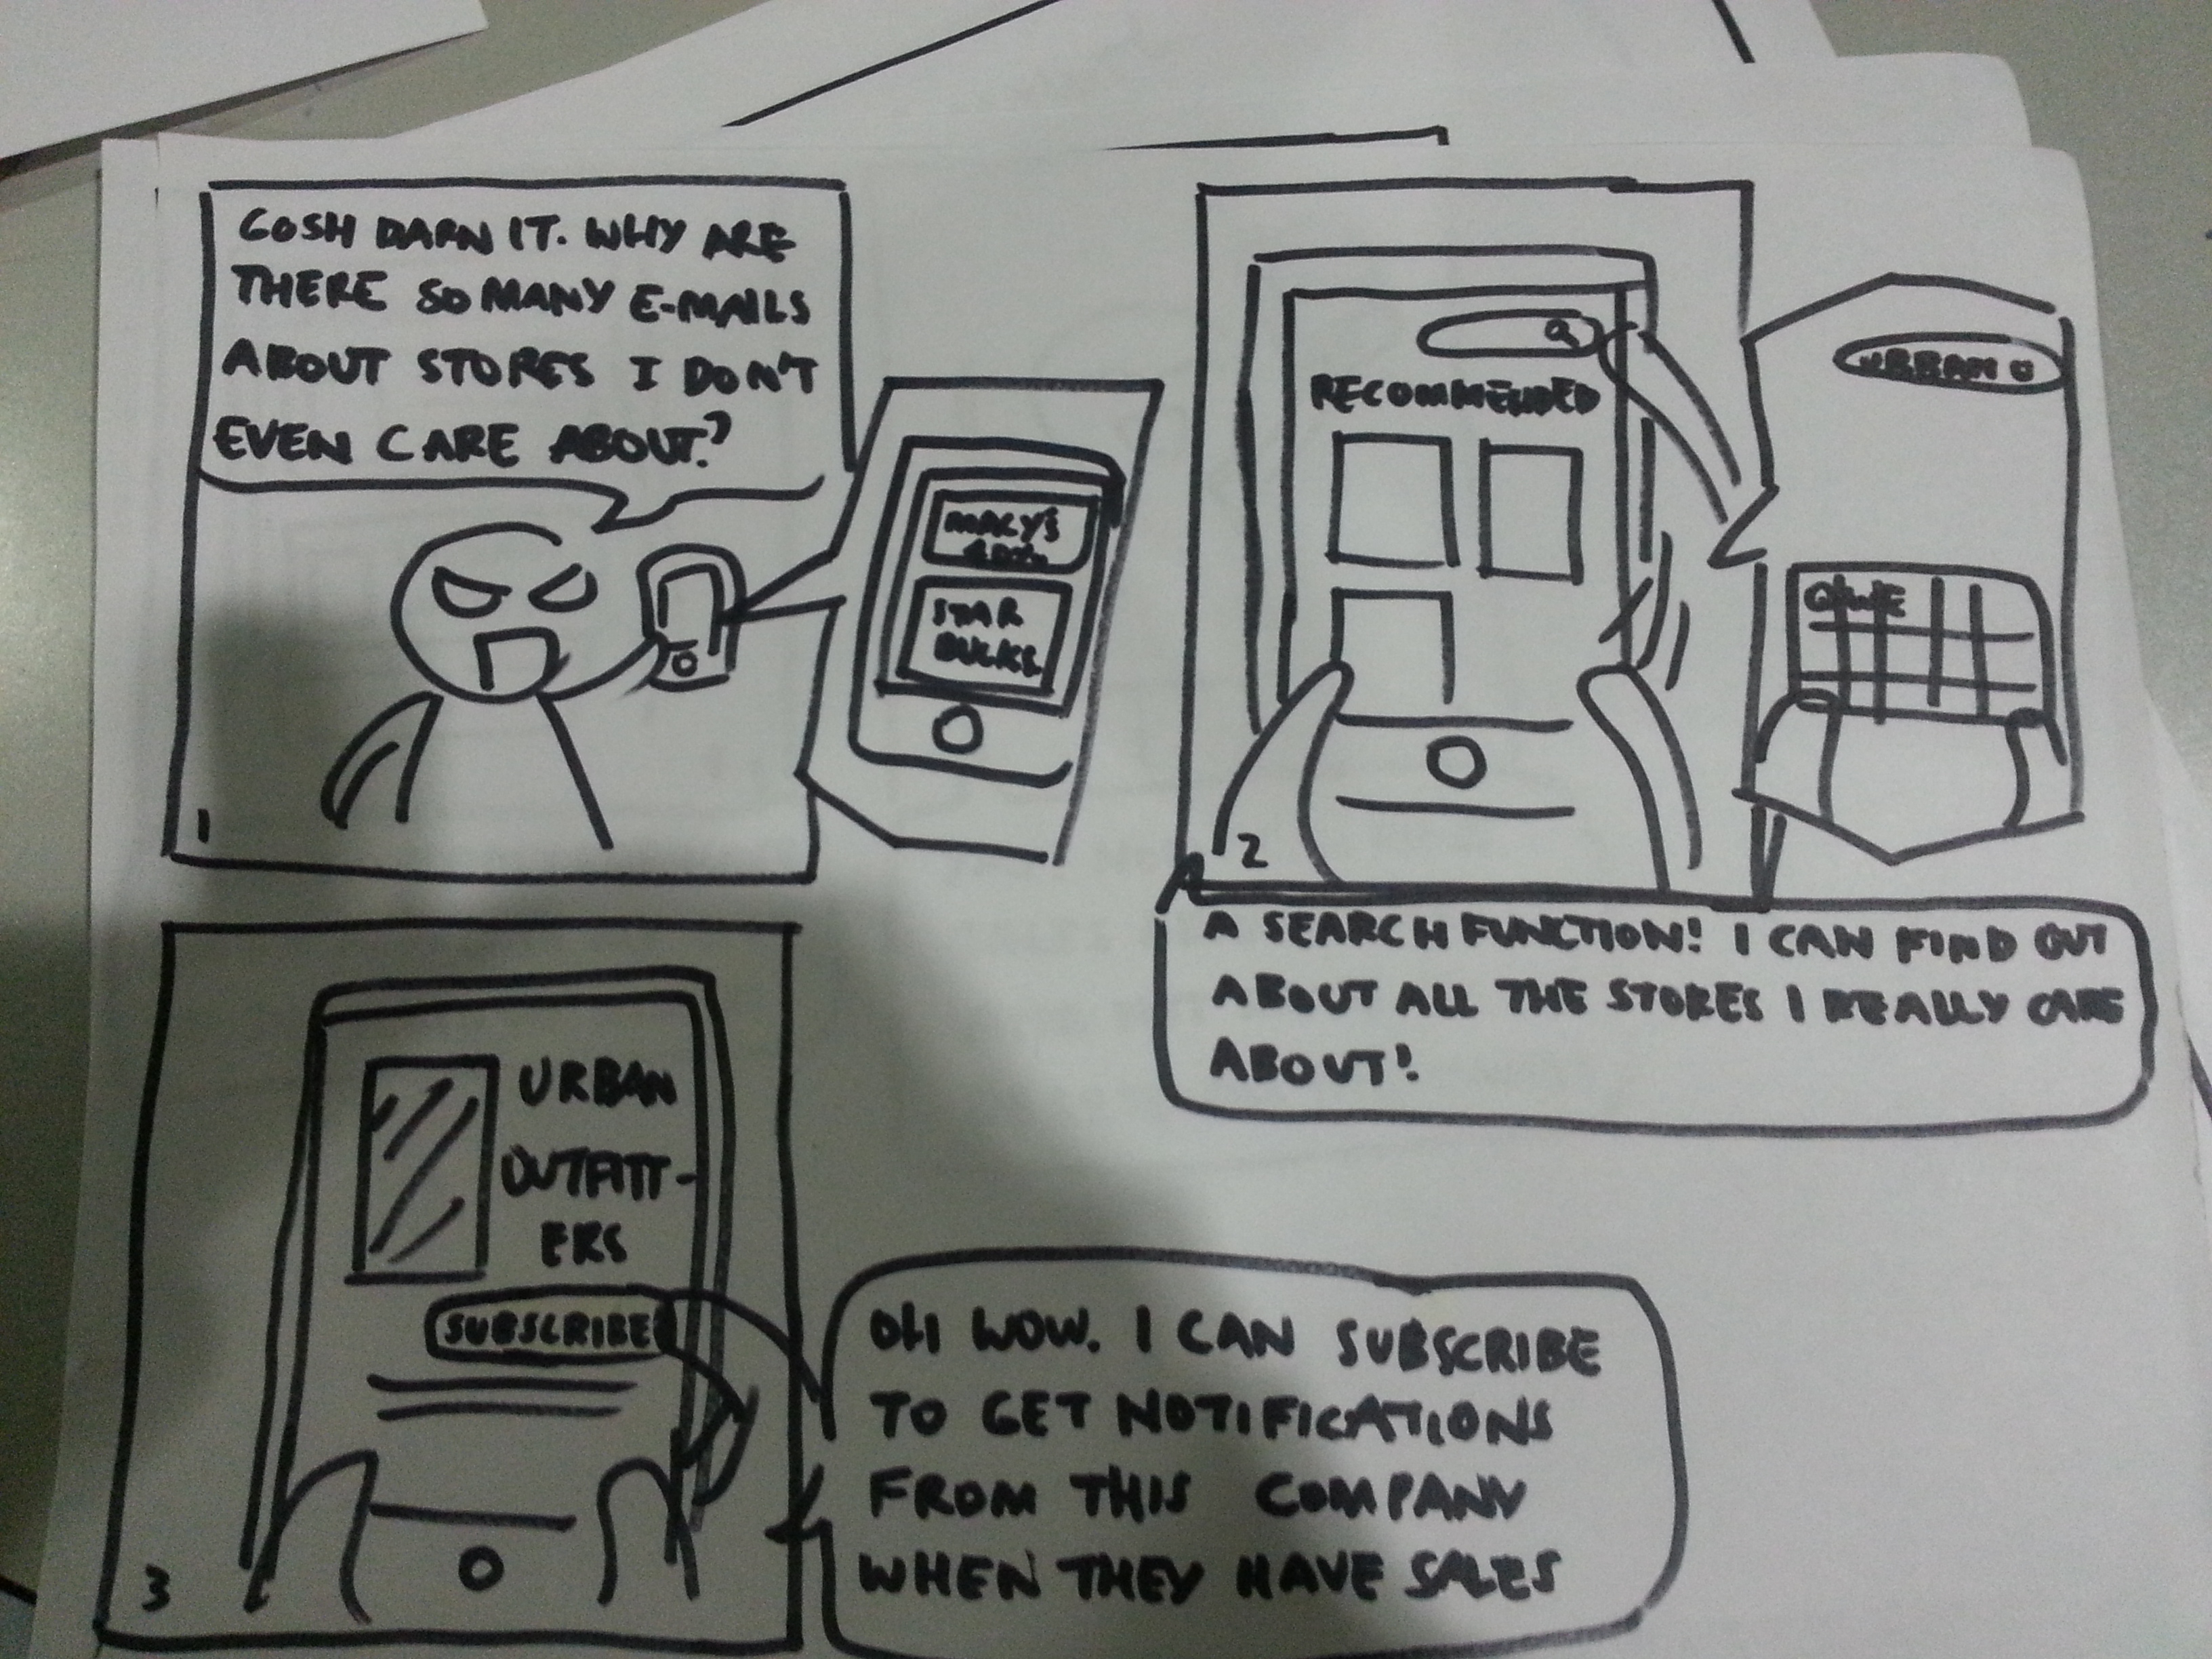 GOSH DARN IT. WHY ARE
THERE SO MANY E-MAILS
ABOUT STORES I DON'T
EVEN CARE ABOUT?
MACY'S
STAR
BUCKS
1
RECOMMENDED
URBAN O
QWE
2
A SEARCH FUNCTION! I CAN FIND OUT
ABOUT ALL THE STORES I REALLY CARE
ABOUT!
URBAN
OUTFITT-
ERS
SUBSCRIBE
3
OH WOW. I CAN SUBSCRIBE
TO GET NOTIFICATIONS
FROM THIS COMPANY
WHEN THEY HAVE SALES